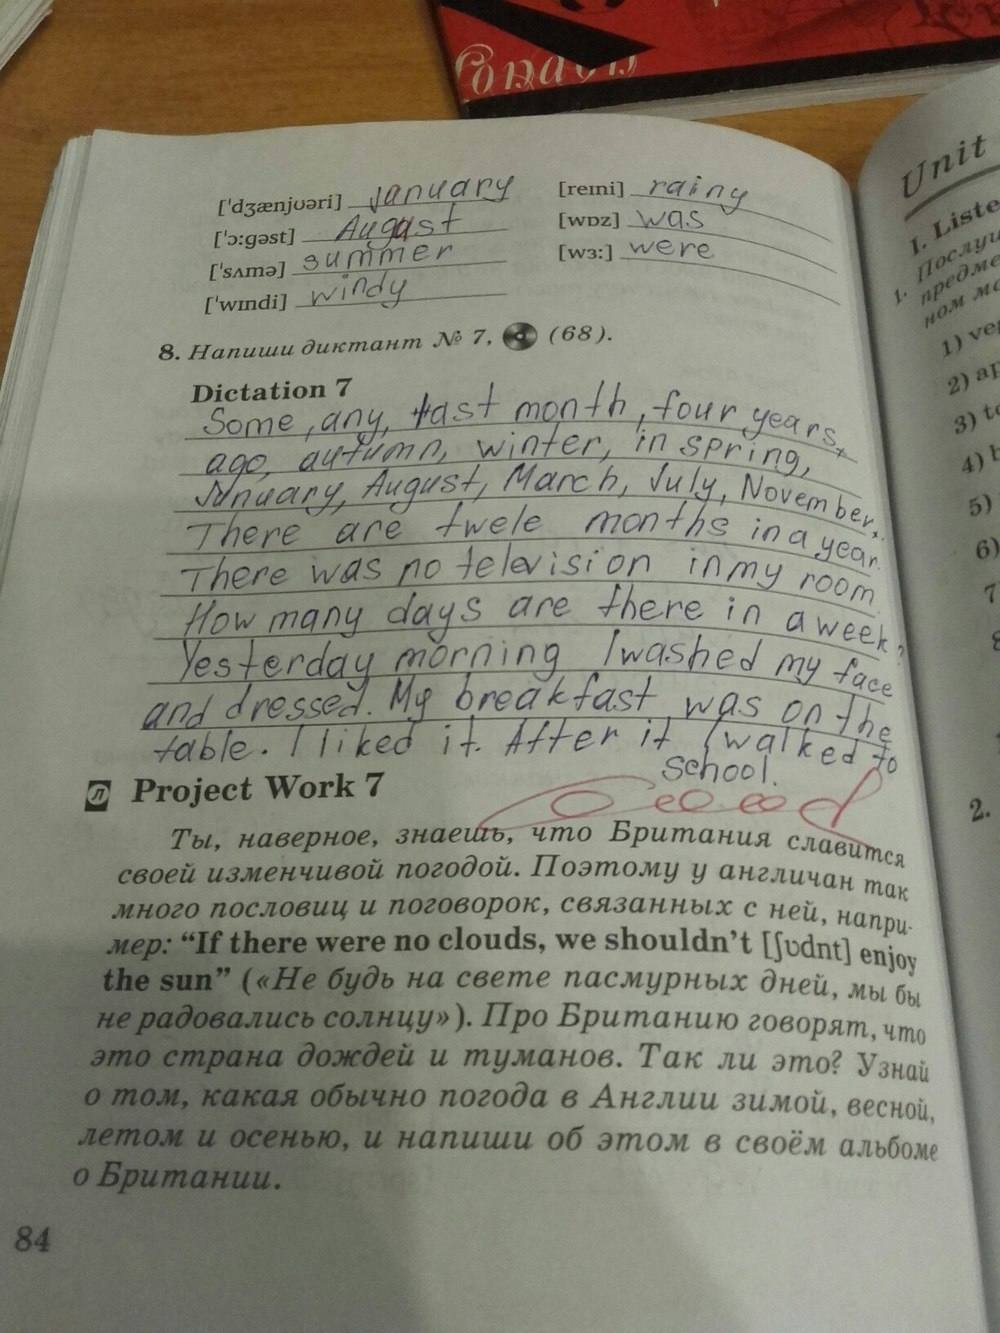 London
['dʒænjʊəri] january
['ɔ:gəst] August
['sʌmə] summer
['wɪndi] windy
[reɪni] rainy
[wɒz] was
[wɜ:] were
8. Напиши диктант № 7, (68).
Dictation 7
Some, any, last month, four years,
ago, autumn, winter, in spring,
January, August, March, July, November.
There are twele months in a year.
There was no television in my room.
How many days are there in a week?
Yesterday morning I washed my face
and dressed. My breakfast was on the
table. I liked it. After it I walked to
school.
Good
л Project Work 7
Ты, наверное, знаешь, что Британия славится
своей изменчивой погодой. Поэтому у англичан так
много пословиц и поговорок, связанных с ней, напри-
мер: “If there were no clouds, we shouldn’t [ʃʊdnt] enjoy
the sun” («Не будь на свете пасмурных дней, мы бы
не радовались солнцу»). Про Британию говорят, что
это страна дождей и туманов. Так ли это? Узнай
о том, какая обычно погода в Англии зимой, весной,
летом и осенью, и напиши об этом в своём альбоме
о Британии.
84
Unit
I. Liste
1. Послу
предме
ном мо
1) ve
2) ap
3) to
4)
5)
6)
7
2.